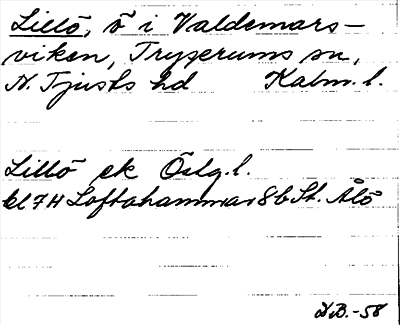 Lillö, ö i Valdemars-
viken, Tryserums sn,
N. Tjusts hd Kalm. l.
Lillö ek Östg. l.
bl 7H Loftahammar 8b St. Ålö
DB.-58